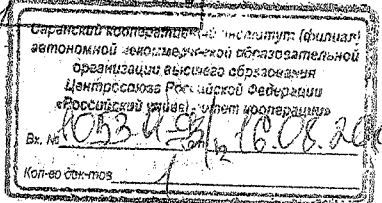 Саранский кооперативный институт (филиал)
автономной некоммерческой образовательной
организации высшего образования
Центросоюза Российской Федерации
«Российский университет кооперации»
Вх. № 16.08.
Кол-во док-тов 1